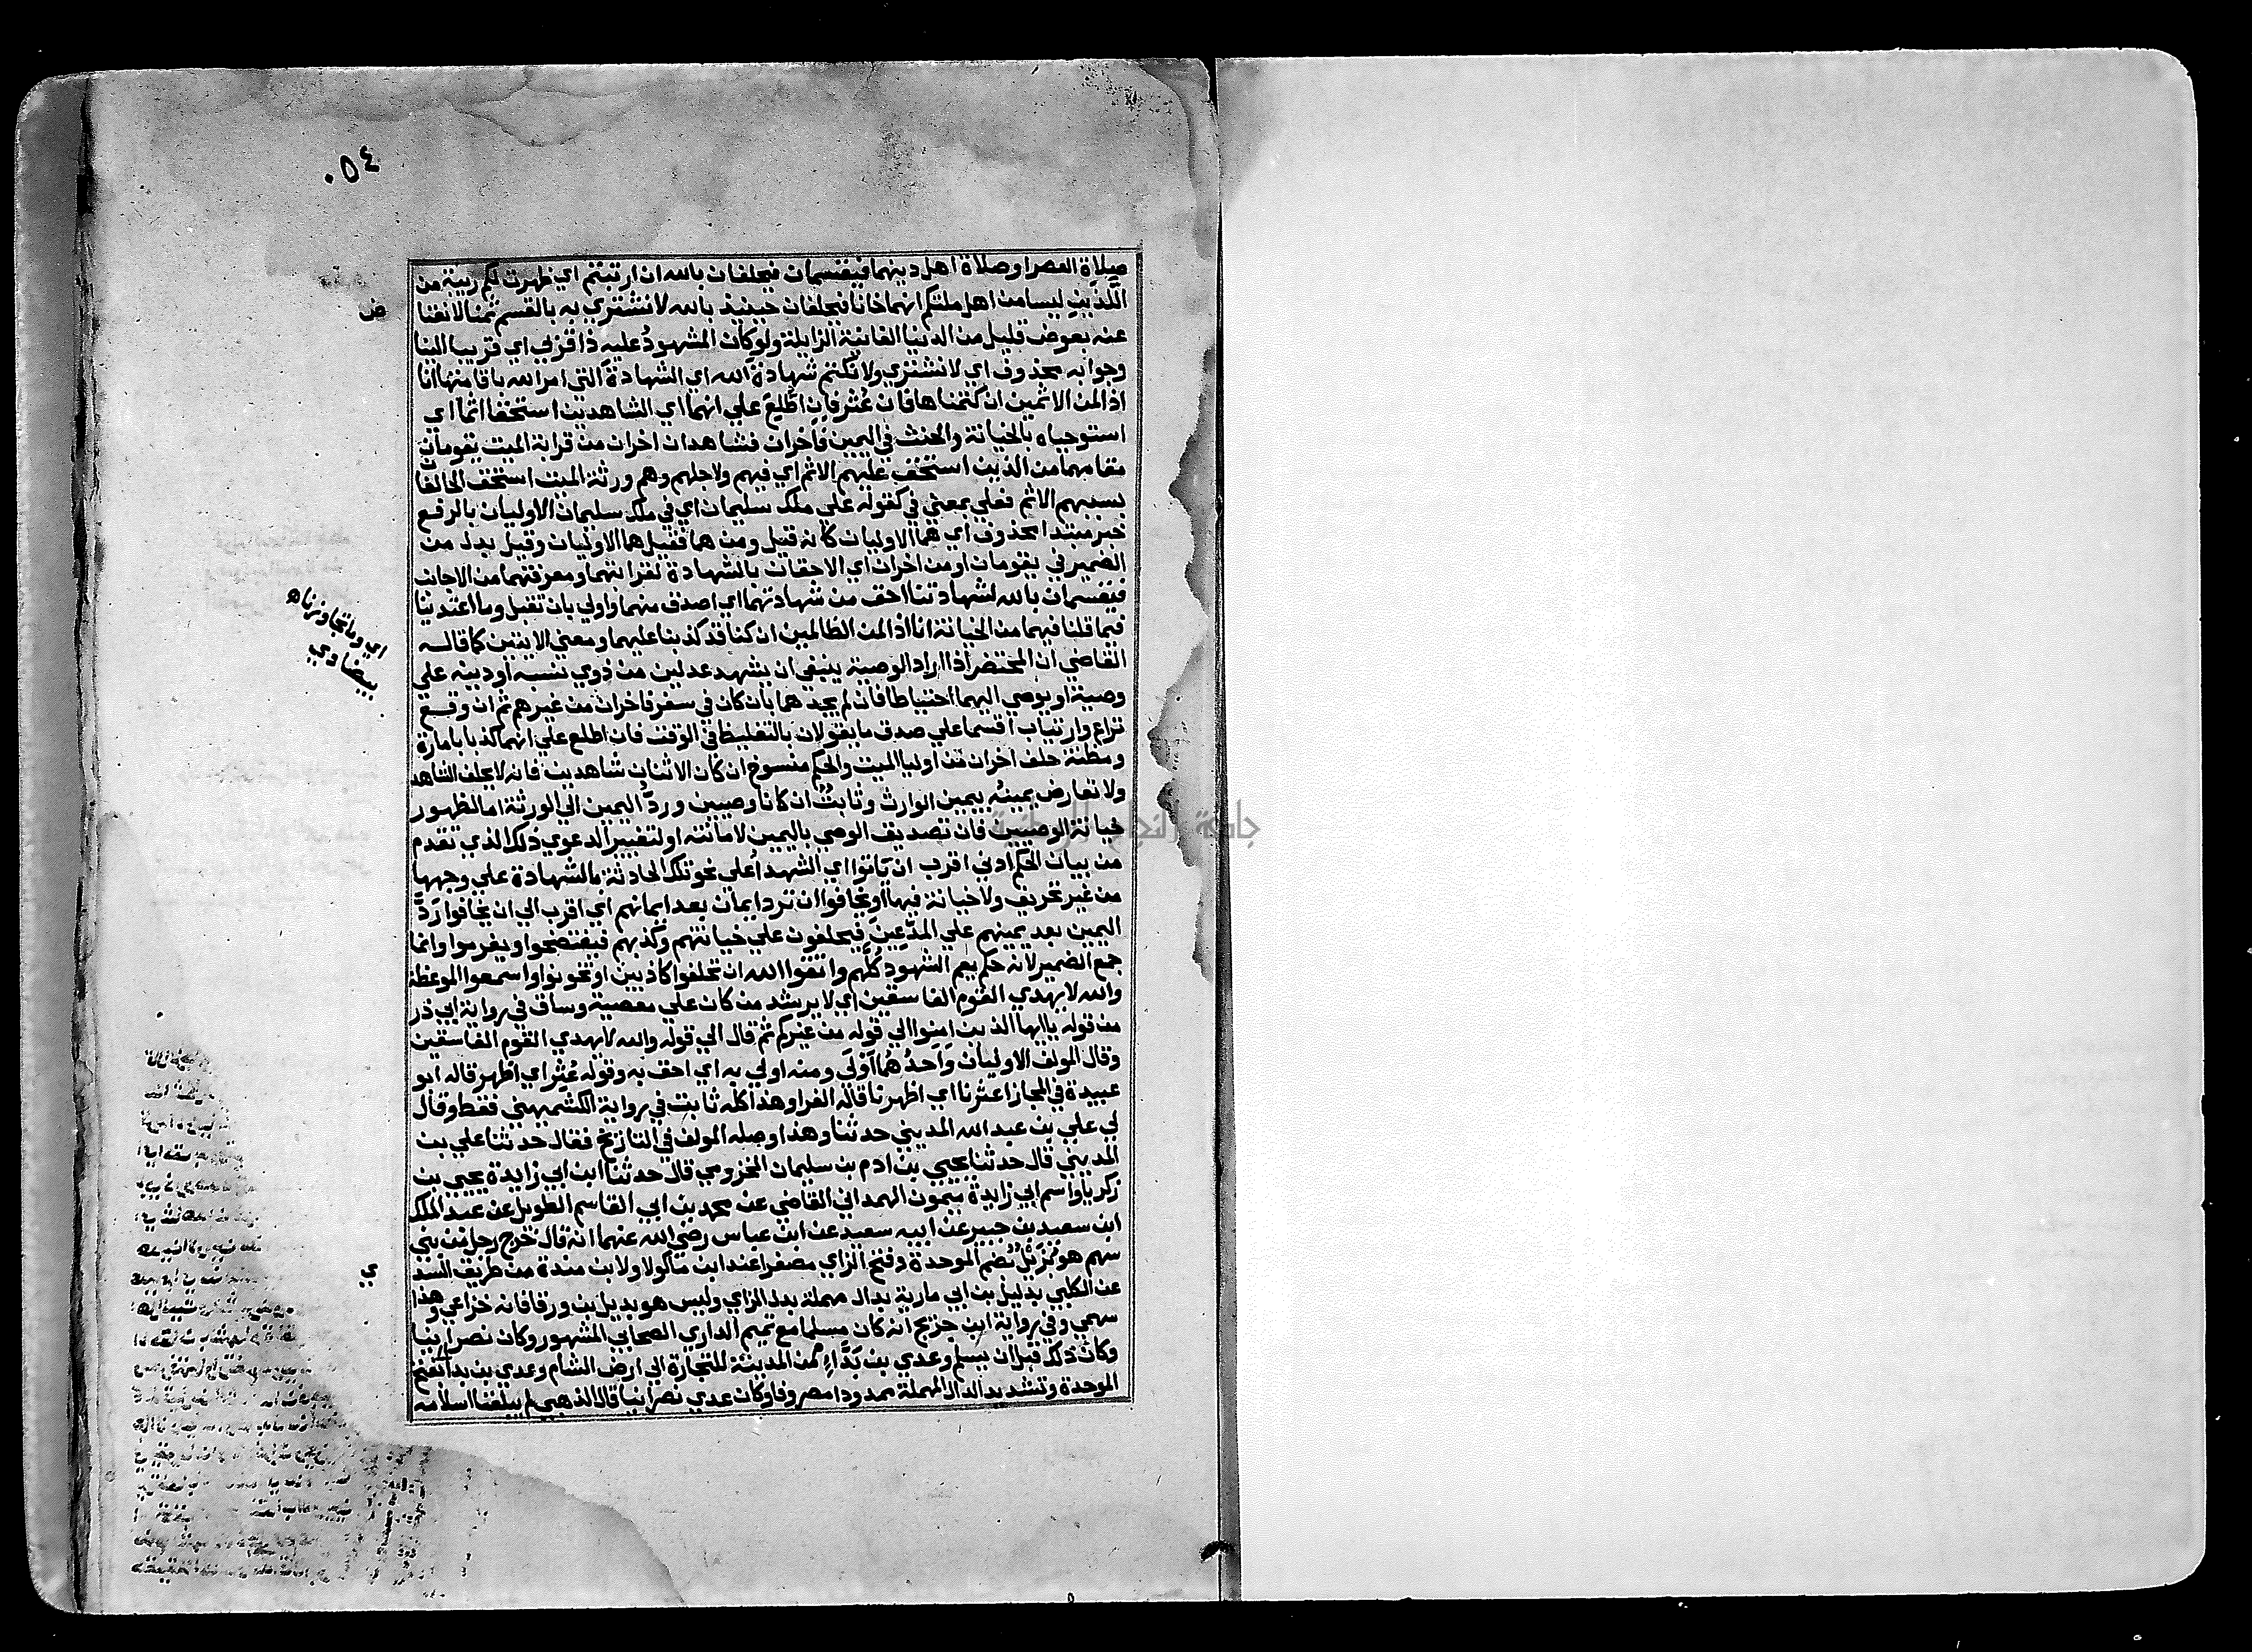 ٠٥٤
صلاة العصر او صلاة اهل دينهما فيقسمان فيحلفان بالله ان ارتبتم اي ظهرت لكم ريبة من
اللذين ليسا من اهل ملتكم انهما خانا فيحلفان حينيذ بالله لا نشتري به بالقسم ثمنا لا نعتاض
عنه بعوض قليل من الدنيا الفانية الزايلة ولو كان المشهود عليه ذا قربي اي قريبا الينا
وجوابه محذوف اي لا نشتري ولا نكتم شهادة الله اي الشهادة التي امر الله باقامتها انا
اذا لمن الاثمين ان كتمناها فان عُثر فان اطُّلِعَ علي انهما اي الشاهدين استحقا اثما اي
استوجباه بالخيانة والحنث في اليمين فاخران فشاهدان اخران من قرابة الميت يقومان
مقامهما من الذين استحق عليهم الاثم اي فيهم ولاجلهم وهم ورثة الميت استحق الحالفان
بسببهم الاثم فعلي بمعني في كقوله علي ملك سليمان اي في ملك سليمان الاوليان بالرفع
خبر مبتدا محذوف اي هما الاوليان كانه قيل ومن هما فقيل هما الاوليان وقيل بدل من
الضمير في يقومان او من اخران اي الاحقان بالشهادة لقرابتهما ومعرفتهما من الاجانب
فيقسمان بالله لشهادتنا احق من شهادتهما اي اصدق منهما واولي بان تقبل وما اعتدينا
فيما قلنا فيهما من الخيانة انا اذا لمن الظالمين ان كنا قد كذبنا عليهما ومعني الايتين كما قاله
القاضي ان المحتضر اذا اراد الوصية ينبغي ان يشهد عدلين من ذوي نسبه او دينه علي
وصيته او يوصي اليهما احتياطا فان لم يجدهما بان كان في سفر فاخران من غيرهم ثم ان وقع
نزاع وارتياب اقسما علي صدق ما يقولان بالتغليظ في الوقت فان اطلع علي انهما كذبا بامارة
ومظنة حلف اخران من اوليا الميت والحكم منسوخ ان كان الاثنان شاهدين فانه لا يحلف الشاهد
ولا تعارض يمينُه بيمين الوارث وثابتٌ ان كانا وصيين وردُّ اليمين الي الورثة اما لظهور
خيانة الوصيين فان تصديق الوصي باليمين لامانته او لتغيير الدعوي ذلك الذي تقدم
من بيان الحكم ادني اقرب ان ياتوا اي الشهدا علي نحو تلك الحادثة بالشهادة علي وجهها
من غير تحريف ولا خيانة فيها او يخافوا ان ترد ايمان بعد ايمانهم اي اقرب الي ان يخافوا رَدَّ
اليمين بعد يمينهم علي المدَّعِينَ فيحلفون علي خيانتهم وكذبهم فيفتضحوا ويغرموا وانما
جمع الضمير لانه حكم يعم الشهود كُلَّهم واتقوا الله ان تحلفوا كاذبين او تخونوا واسمعوا الموعظة
والله لا يهدي القوم الفاسقين اي لا يرشد من كان علي معصية وساق في رواية ابي ذر
من قوله يا ايها الذين امنوا الي قوله من غيركم ثم قال الي قوله والله لا يهدي القوم الفاسقين
وقال المولف الاوليان وَاحدُهُما أَوْلَى ومنه اولي به اي احق به وقوله عُثِر اي اظهر قاله ابو
عبيدة في المجاز اعثرنا اي اظهرنا قاله الفرا وهذا كله ثابت في رواية الكشميهني فقط وقال
لي علي بن عبد الله المديني حدثنا وهذا وصله المولف في التاريخ فقال حدثنا علي بن
المديني قال حدثنا يحيي بن ادم بن سليمان المخزومي قال حدثنا ابن ابي زايدة يحيي بن
زكريا واسم ابي زايدة ميمون الهمداني القاضي عن محمد بن ابي القاسم الطويل عن عبد الملك
ابن سعيد بن جبير عن ابيه سعيد عن ابن عباس رضي الله عنهما انه قال خرج رجل من بني
سهم هو بُزَيْلٌ بضم الموحدة وفتح الزاي مصغرا عند ابن ماكولا ولابن مندة من طريق السدي
عن الكلبي بديل بن ابي مارية بدال مهملة بدل الزاي وليس هو بديل بن ورقا فانه خزاعي وهذا
سهمي وفي رواية ابن جريج انه كان مسلما مع تميم الداري الصحابي المشهور وكان نصرانيا
وكان ذلك قبل ان يسلم وعدي بن بَدَّاءٍ من المدينة للتجارة الي ارض الشام وعدي بن بدا بفتح
الموحدة وتشديد الدال المهملة ممدودا مصروفا وكان عدي نصرانيا قال الذهبي لم يبلغنا اسلامه
ض
اي وما تجاوزناه
بيضاوي
ي
جامعة النجاح الوطنية